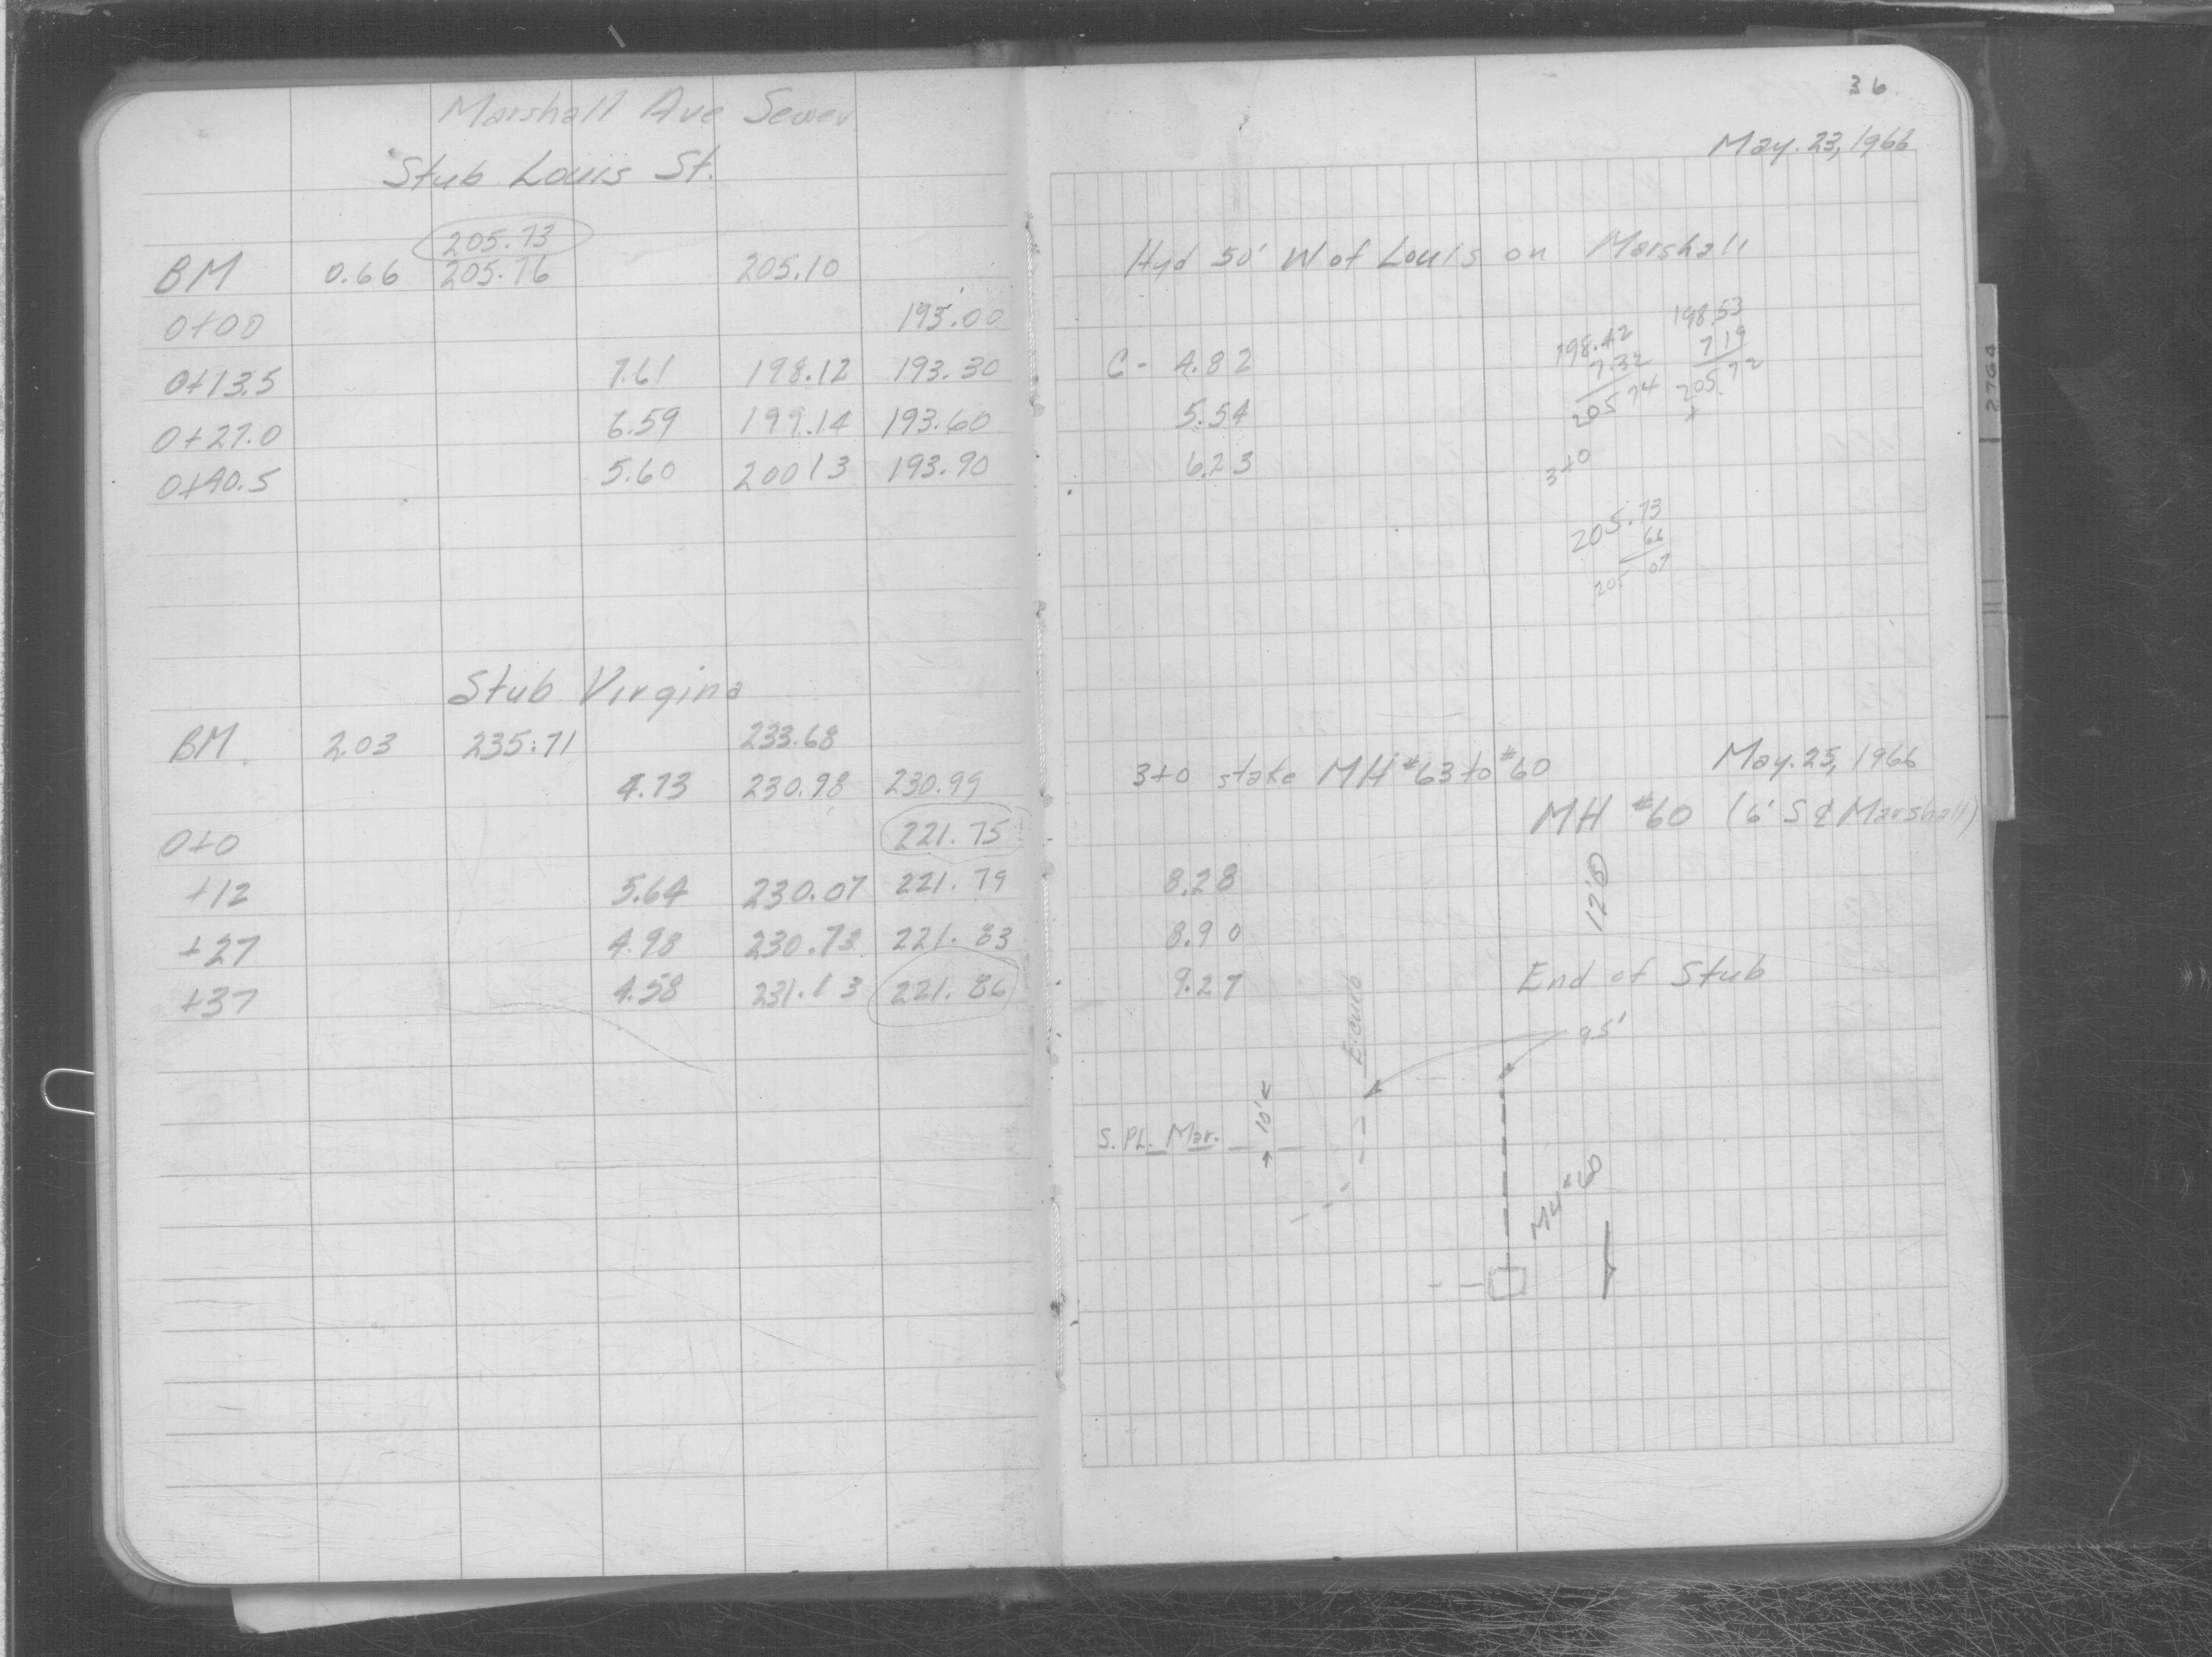 36.
Marshall Ave Sewer
May. 23, 1966
Stub Louis St.
205.73
BM 0.66 205.76 205.10 Hyd 50' W of Louis on Marshall
0+00 193.00
0+13.5 7.61 198.12 193.30 C - 4.82
0+27.0 6.59 199.14 193.60 5.54
0+40.5 5.60 200 13 193.90 6.23
198.42
7.32
205 74
198.53
7 19
205 72
+
3+0
205.73
66
205 07
Stub Virgina
BM. 2.03 235.71 233.68 May. 25, 1966
4.73 230.98 230.99 3+0 stake MH #63 to #60
0+0 221.75 MH #60 (6' S ¢ Marshall)
+12 5.64 230.07 221.79 8.28
+27 4.98 230.73 221.83 8.90
+37 4.58 231.13 221.86 9.27 End of Stub
E. curb
95'
10'
S. PL. Mar.
MH #60
2764